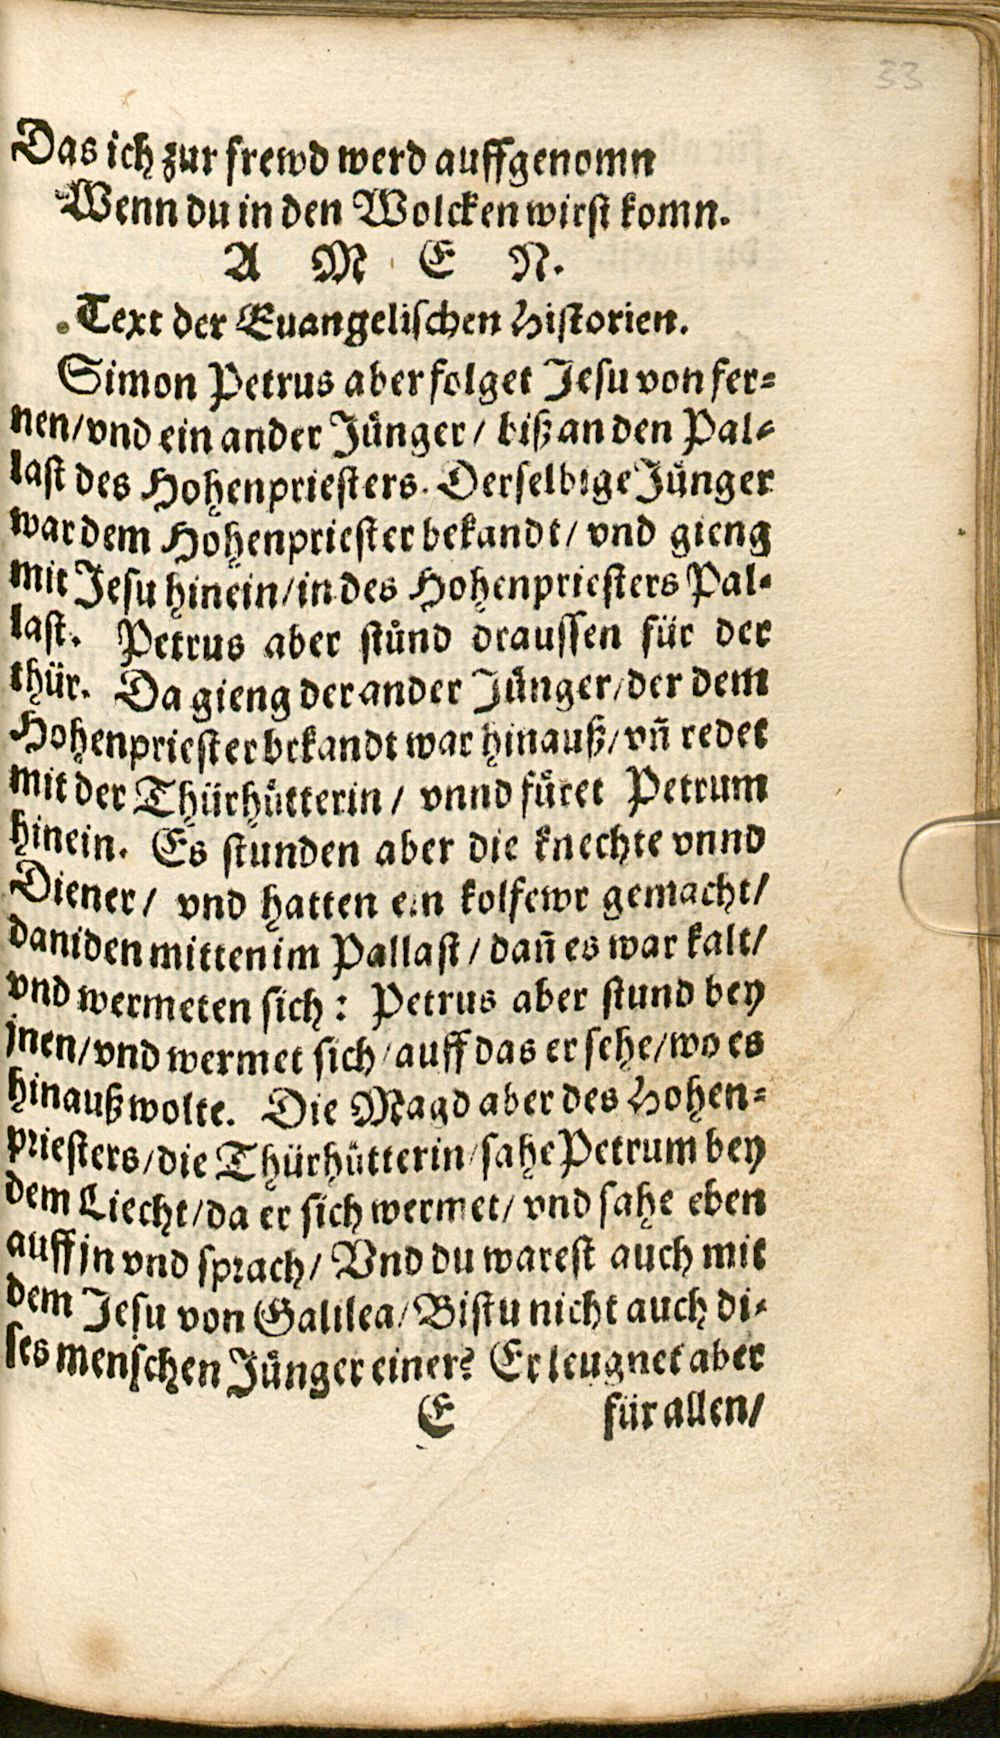 33
Das ich zur frewd werd auffgenomn
Wenn du in den Wolcken wirst komn.
A M E N.
Text der Euangelischen Historien.
Simon Petrus aber folget Jesu von fer-
nen/ vnd ein ander Jünger/ biß an den Pal-
last des Hohenpriesters. Derselbige Jünger
war dem Hohenpriester bekandt/ vnd gieng
mit Jesu hinein/ in des Hohenpriesters Pal-
last. Petrus aber stůnd draussen für der
thür. Da gieng der ander Jünger/ der dem
Hohenpriester bekandt war hinauß/ vn̄ redet
mit der Thürhütterin/ vnnd füret Petrum
hinein. Es stunden aber die knechte vnnd
Diener/ vnd hatten ein kolfewr gemacht/
daniden mitten im Pallast/ dan̄ es war kalt/
vnd wermeten sich: Petrus aber stund bey
jnen/ vnd wermet sich/ auff das er sehe/ wo es
hinauß wolte. Die Magd aber des Hohen-
priesters/ die Thürhütterin/ sahe Petrum bey
dem Liecht/ da er sich wermet/ vnd sahe eben
auff jn vnd sprach/ Vnd du warest auch mit
dem Jesu von Galilea/ Bistu nicht auch di-
ses menschen Jünger einer? Er leugnet aber
E für allen/